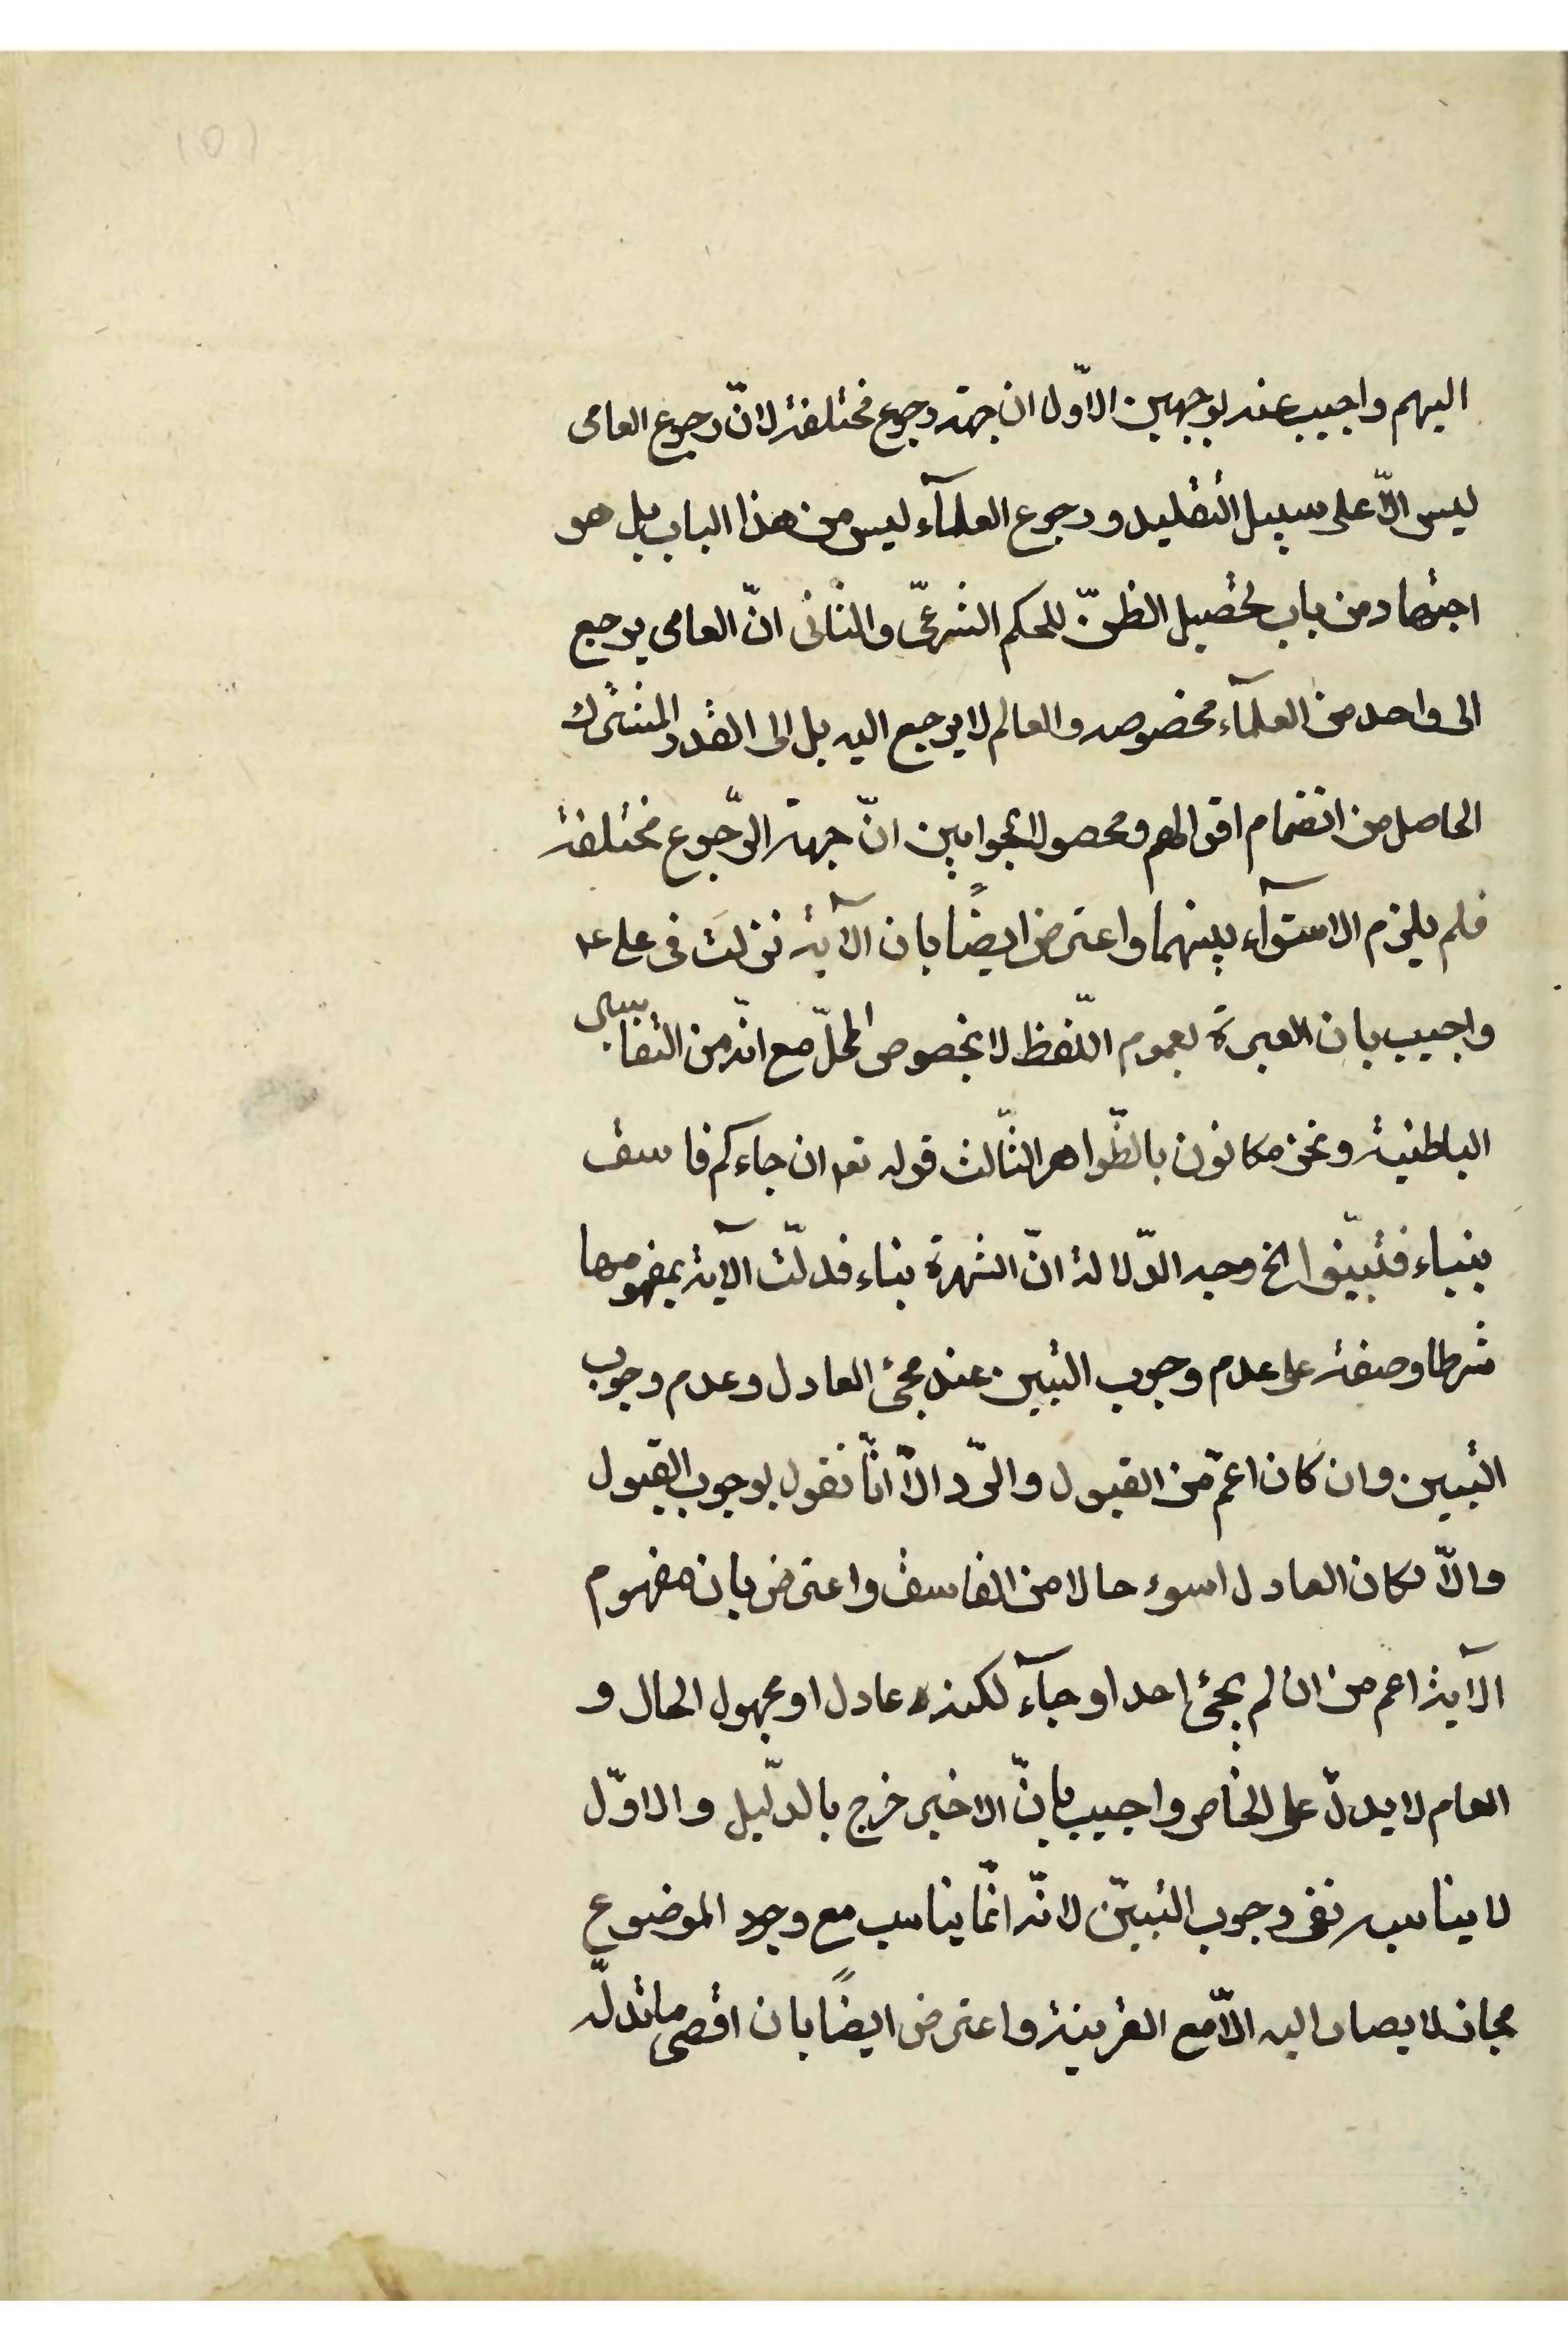 (٥)
اليهم واجيب عنه بوجهين الاوّل ان جهة رجوع مختلفة لانّ رجوع العامى
ليس الّا على سبيل التقليد ورجوع العلمآء ليس من هذا الباب بل هو
اجتهاد من باب تحصيل الظنّ للحكم الشرعىّ والثانى انّ العامى يرجع
الى واحد من العلمآء مخصوصه والعالم لا يرجع اليه بل الى القدر المشترك
الحاصل من انضمام اقوالهم ومحصول الجوابين انّ جهة الرّجوع مختلفة
فلم يلزم الاستوآء بينهما واعترض ايضًا بان الآية نزلت فى على ع
واجيب بان العبرة بعموم اللّفظ لا بخصوص المحلّ مع انّه من التفاسير
الباطنية ونحن مكلفون بالظّواهر الثّالث قوله تعه ان جاءكم فاسق
بنباء فتبيّنوا الخ وجه الدّلالة انّ الشهرة بناء فدلّت الآية بمفهومها
شرطا وصفة على عدم وجوب التبين عند مجئ العادل وعدم وجوب
التبين وان كان اعمّ من القبول والرّد الّا انّا نقول بوجوب القبول
والّا لكان العادل اسوء حالا من الفاسق واعترض بان مفهوم
الآية اعم من ان لم يجئ احد او جآء لكنه عادل او مجهول الحال و
العام لا يدلّ على الخاص واجيب بانّ الاخير خرج بالدّليل والاوّل
لا يناسب نفى وجوب التبيّن لانّه انّما يناسب مع وجود الموضوع
مجاز لا يصار اليه الّا مع القرينة واعترض ايضًا بان اقصى ما تدلّ